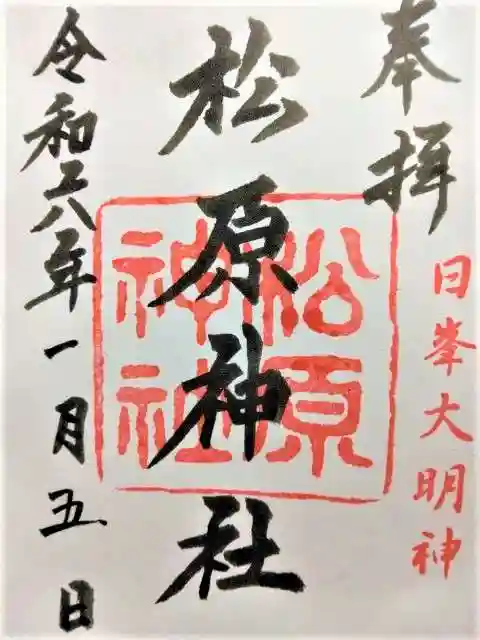 奉拝
日峯大明神
松原神社
松原
神社
令和六年一月五日